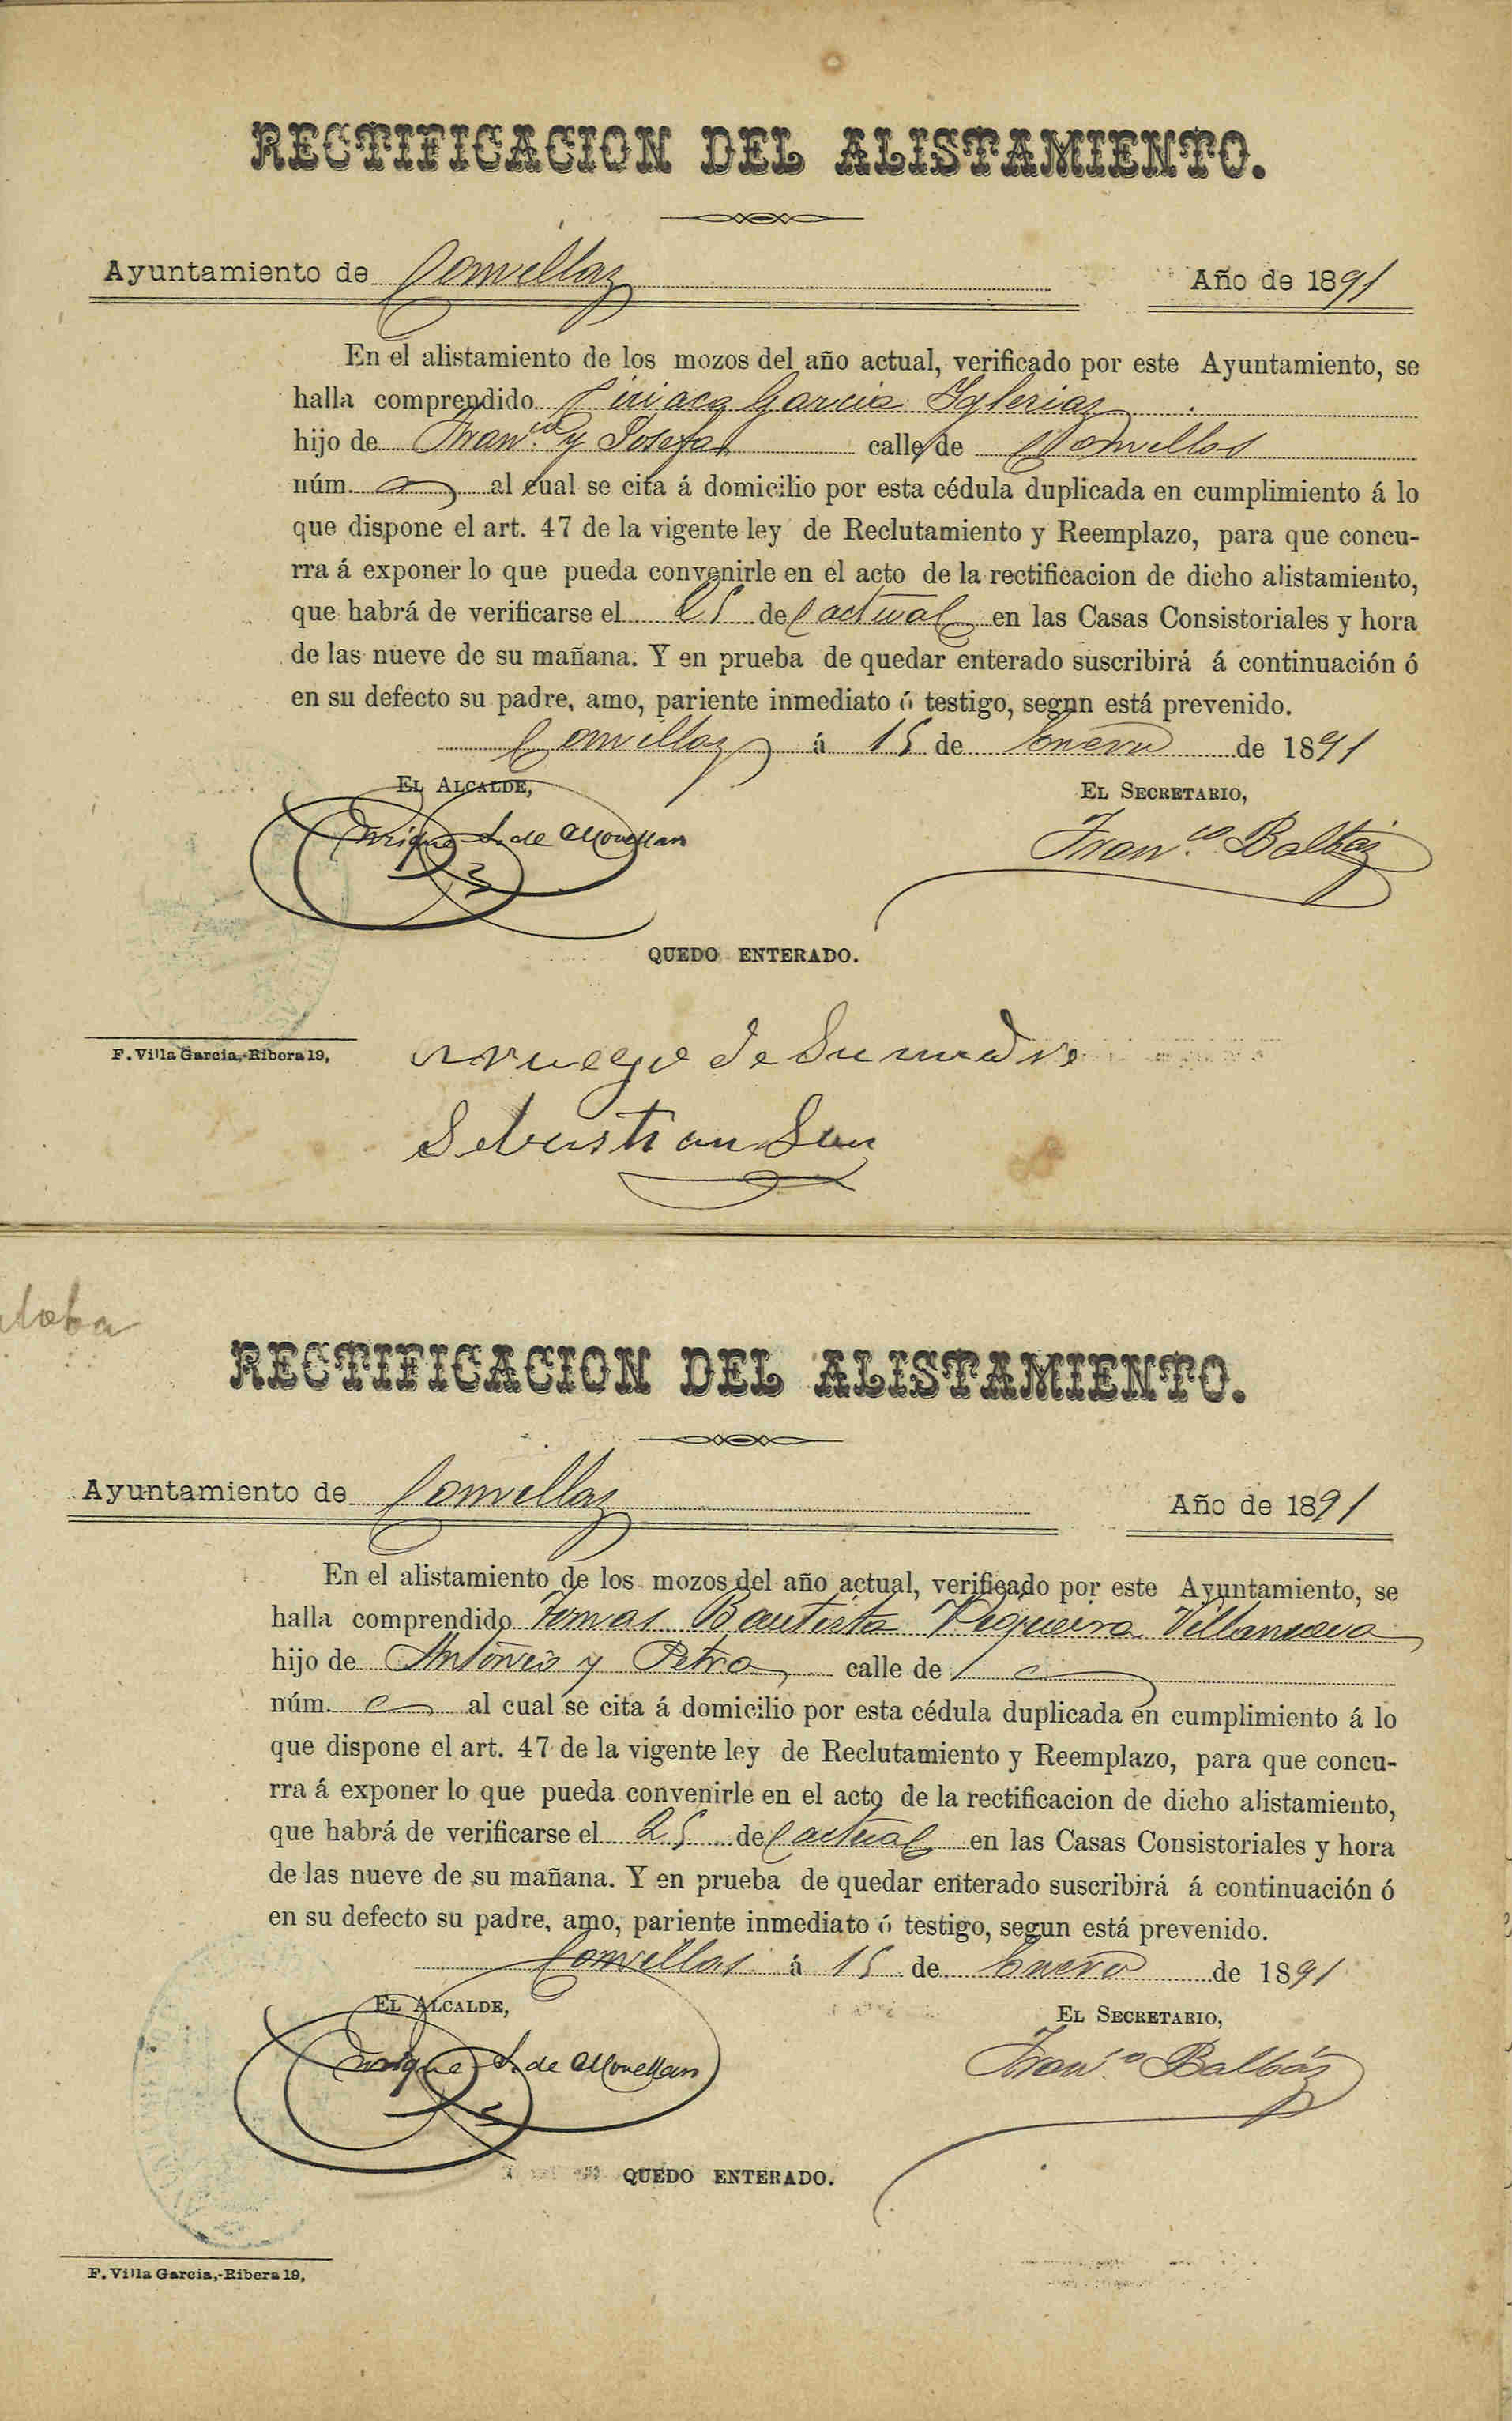 RECTIFICACION DEL ALISTAMIENTO.
Ayuntamiento de Comillas Año de 1891
En el alistamiento de los mozos del año actual, verificado por este Ayuntamiento, se
halla comprendido Ciriaco Garcia Iglesias
hijo de Fran.co y Josefa calle de Comillas
núm. al cual se cita á domicilio por esta cédula duplicada en cumplimiento á lo
que dispone el art. 47 de la vigente ley de Reclutamiento y Reemplazo, para que concu-
rra á exponer lo que pueda convenirle en el acto de la rectificacion de dicho alistamiento,
que habrá de verificarse el 25 del actual en las Casas Consistoriales y hora
de las nueve de su mañana. Y en prueba de quedar enterado suscribirá á continuación ó
en su defecto su padre, amo, pariente inmediato ó testigo, segun está prevenido.
Comillas á 15 de Enero de 1891
EL ALCALDE, EL SECRETARIO,
Enrique S. de Movellan Fran.co Balbás
QUEDO ENTERADO.
F. Villa Garcia,-Ribera 19,
a rruego de Su madre
Sebastian San
loba
RECTIFICACION DEL ALISTAMIENTO.
Ayuntamiento de Comillas Año de 1891
En el alistamiento de los mozos del año actual, verificado por este Ayuntamiento, se
halla comprendido Tomas Bautista Villanueva
hijo de Antonio y Petra calle de
núm. al cual se cita á domicilio por esta cédula duplicada en cumplimiento á lo
que dispone el art. 47 de la vigente ley de Reclutamiento y Reemplazo, para que concu-
rra á exponer lo que pueda convenirle en el acto de la rectificacion de dicho alistamiento,
que habrá de verificarse el 25 del actual en las Casas Consistoriales y hora
de las nueve de su mañana. Y en prueba de quedar enterado suscribirá á continuación ó
en su defecto su padre, amo, pariente inmediato ó testigo, segun está prevenido.
Comillas á 15 de Enero de 1891
EL ALCALDE, EL SECRETARIO,
Enrique S. de Movellan Fran.co Balbás
QUEDO ENTERADO.
F. Villa Garcia,-Ribera 19,